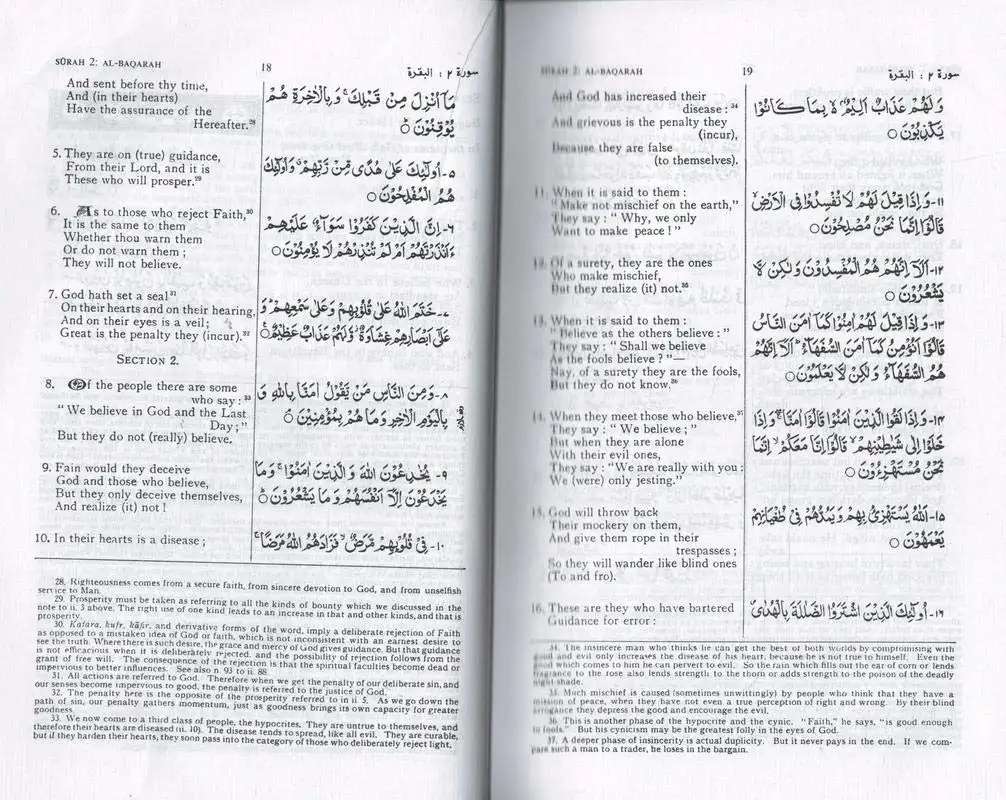 SŪRAH 2: AL-BAQARAH
18
سورة ٢ : البقرة
And sent before thy time,
And (in their hearts)
Have the assurance of the
Hereafter.²⁸
مَآ اُنْزِلَ مِنْ قَبْلِكَ ۚ وَبِالْاٰخِرَةِ هُمْ
يُوْقِنُوْنَ ۝
5. They are on (true) guidance,
From their Lord, and it is
These who will prosper.²⁹
٥- اُولٰٓئِكَ عَلٰى هُدًى مِّنْ رَّبِّهِمْ ۤ وَاُولٰٓئِكَ
هُمُ الْمُفْلِحُوْنَ ۝
6. As to those who reject Faith,³⁰
It is the same to them
Whether thou warn them
Or do not warn them ;
They will not believe.
٦- اِنَّ الَّذِيْنَ كَفَرُوْا سَوَآءٌ عَلَيْهِمْ
ءَاَنْذَرْتَهُمْ اَمْ لَمْ تُنْذِرْهُمْ لَا يُؤْمِنُوْنَ ۝
7. God hath set a seal³¹
On their hearts and on their hearing,
And on their eyes is a veil ;
Great is the penalty they (incur).³²
٧- خَتَمَ اللهُ عَلٰى قُلُوْبِهِمْ وَعَلٰى سَمْعِهِمْ ۭ وَ
عَلٰٓى اَبْصَارِهِمْ غِشَاوَةٌ ۡ وَّلَهُمْ عَذَابٌ عَظِيْمٌ ۝
SECTION 2.
8. Of the people there are some
who say : ³³
" We believe in God and the Last
Day ; "
But they do not (really) believe.
٨- وَمِنَ النَّاسِ مَنْ يَّقُوْلُ اٰمَنَّا بِاللهِ وَ
بِالْيَوْمِ الْاٰخِرِ وَمَا هُمْ بِمُؤْمِنِيْنَ ۝
9. Fain would they deceive
God and those who believe,
But they only deceive themselves,
And realize (it) not !
٩- يُخٰدِعُوْنَ اللهَ وَالَّذِيْنَ اٰمَنُوْا ۚ وَمَا
يَخْدَعُوْنَ اِلَّآ اَنْفُسَهُمْ وَمَا يَشْعُرُوْنَ ۝
10. In their hearts is a disease ;
١٠- فِيْ قُلُوْبِهِمْ مَّرَضٌ ۙ فَزَادَهُمُ اللهُ مَرَضًا ۚ
28. Righteousness comes from a secure faith, from sincere devotion to God, and from unselfish
service to Man.
29. Prosperity must be taken as referring to all the kinds of bounty which we discussed in the
note to ii. 3 above. The right use of one kind leads to an increase in that and other kinds, and that is
prosperity.
30. Kafara, kufr, kāfir, and derivative forms of the word, imply a deliberate rejection of Faith
as opposed to a mistaken idea of God or faith, which is not inconsistent with an earnest desire to
see the truth. Where there is such desire, the grace and mercy of God gives guidance. But that guidance
is not efficacious when it is deliberately rejected, and the possibility of rejection follows from the
grant of free will. The consequence of the rejection is that the spiritual faculties become dead or
impervious to better influences. See also n. 93 to ii. 88.
31. All actions are referred to God. Therefore when we get the penalty of our deliberate sin, and
our senses become impervious to good, the penalty is referred to the justice of God.
32. The penalty here is the opposite of the prosperity referred to in ii 5. As we go down the
path of sin, our penalty gathers momentum, just as goodness brings its own capacity for greater
goodness.
33. We now come to a third class of people, the hypocrites. They are untrue to themselves, and
therefore their hearts are diseased (ii. 10). The disease tends to spread, like all evil. They are curable,
but if they harden their hearts, they soon pass into the category of those who deliberately reject light.
SŪRAH 2: AL-BAQARAH
19
سورة ٢ : البقرة
And God has increased their
disease : ³⁴
And grievous is the penalty they
(incur),
Because they are false
(to themselves).
وَلَهُمْ عَذَابٌ اَلِيْمٌ ۙ بِمَا كَانُوْا
يَكْذِبُوْنَ ۝
11. When it is said to them :
" Make not mischief on the earth,"
They say : " Why, we only
Want to make peace ! "
١١- وَاِذَا قِيْلَ لَهُمْ لَا تُفْسِدُوْا فِي الْاَرْضِ ۙ
قَالُوْٓا اِنَّمَا نَحْنُ مُصْلِحُوْنَ ۝
12. Of a surety, they are the ones
Who make mischief,
But they realize (it) not.³⁵
١٢- اَلَآ اِنَّهُمْ هُمُ الْمُفْسِدُوْنَ وَلٰكِنْ لَّا
يَشْعُرُوْنَ ۝
13. When it is said to them :
" Believe as the others believe : "
They say : " Shall we believe
As the fools believe ? "—
Nay, of a surety they are the fools,
But they do not know.³⁶
١٣- وَاِذَا قِيْلَ لَهُمْ اٰمِنُوْا كَمَآ اٰمَنَ النَّاسُ
قَالُوْٓا اَنُؤْمِنُ كَمَآ اٰمَنَ السُّفَهَآءُ ۭ اَلَآ اِنَّهُمْ
هُمُ السُّفَهَآءُ وَلٰكِنْ لَّا يَعْلَمُوْنَ ۝
14. When they meet those who believe,³⁷
They say : " We believe ; "
But when they are alone
With their evil ones,
They say : "We are really with you :
We (were) only jesting."
١٤- وَاِذَا لَقُوا الَّذِيْنَ اٰمَنُوْا قَالُوْٓا اٰمَنَّا ۚ وَاِذَا
خَلَوْا اِلٰى شَيٰطِيْنِهِمْ ۙ قَالُوْٓا اِنَّا مَعَكُمْ ۙ اِنَّمَا
نَحْنُ مُسْتَهْزِءُوْنَ ۝
15. God will throw back
Their mockery on them,
And give them rope in their
trespasses ;
So they will wander like blind ones
(To and fro).
١٥- اَللهُ يَسْتَهْزِئُ بِهِمْ وَيَمُدُّهُمْ فِيْ طُغْيَانِهِمْ
يَعْمَهُوْنَ ۝
16. These are they who have bartered
Guidance for error :
١٦- اُولٰٓئِكَ الَّذِيْنَ اشْتَرَوُا الضَّلٰلَةَ بِالْهُدٰى ۠
34. The insincere man who thinks he can get the best of both worlds by compromising with
good and evil only increases the disease of his heart, because he is not true to himself. Even the
good which comes to him he can pervert to evil. So the rain which fills out the ear of corn or lends
fragrance to the rose also lends strength to the thorn or adds strength to the poison of the deadly
night-shade.
35. Much mischief is caused (sometimes unwittingly) by people who think that they have a
mission of peace, when they have not even a true perception of right and wrong. By their blind
arrogance they depress the good and encourage the evil.
36. This is another phase of the hypocrite and the cynic. "Faith," he says, "is good enough
to fools." But his cynicism may be the greatest folly in the eyes of God.
37. A deeper phase of insincerity is actual duplicity. But it never pays in the end. If we com-
pare such a man to a trader, he loses in the bargain.